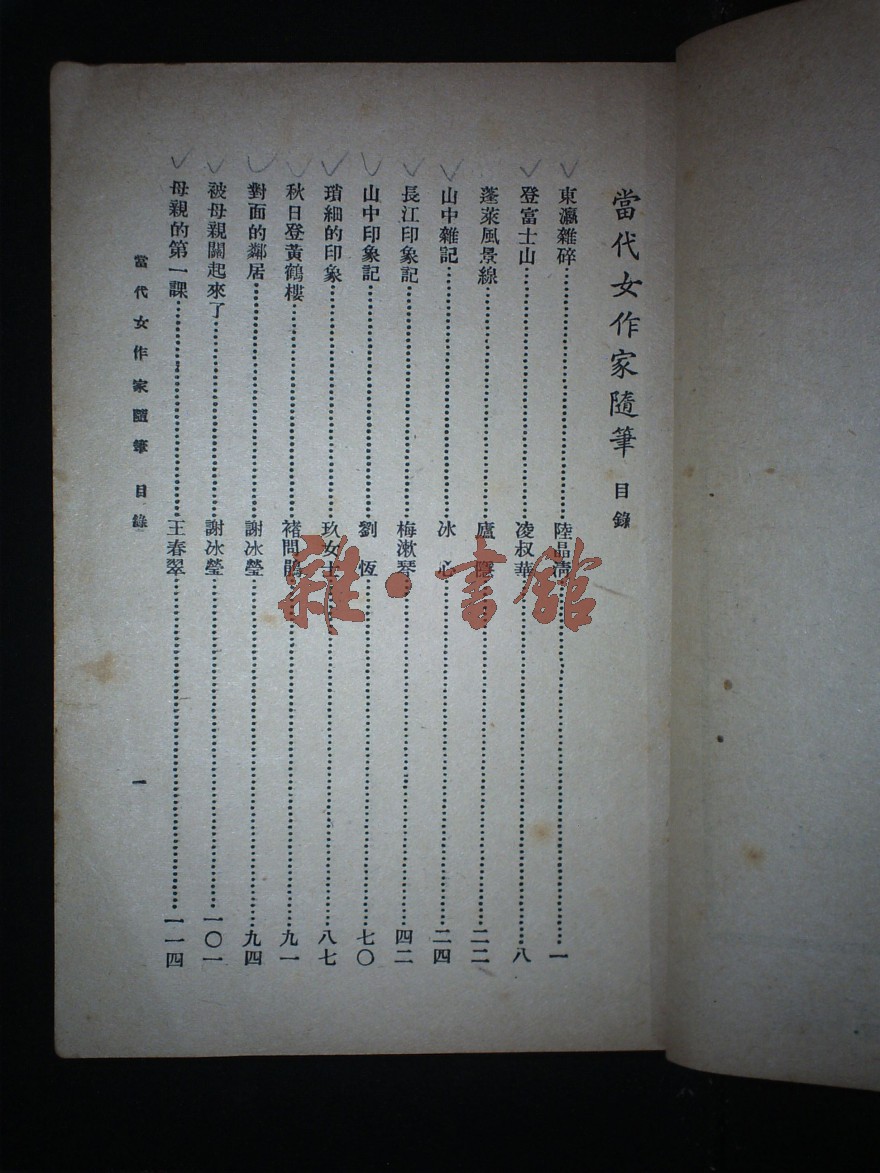 當代女作家隨筆 目錄
東瀛雜碎 陸晶清 一
登富士山 凌叔華 八
蓬萊風景線 廬隱 二二
山中雜記 冰心 二四
長江印象記 梅漱琴 四二
山中印象記 劉恆 七〇
瑣細的印象 玖女士 八七
秋日登黃鶴樓 褚問鵑 九一
對面的鄰居 謝冰瑩 九四
被母親關起來了 謝冰瑩 一〇一
母親的第一課 王春翠 一一四
當代女作家隨筆 目錄 一
雜·書館